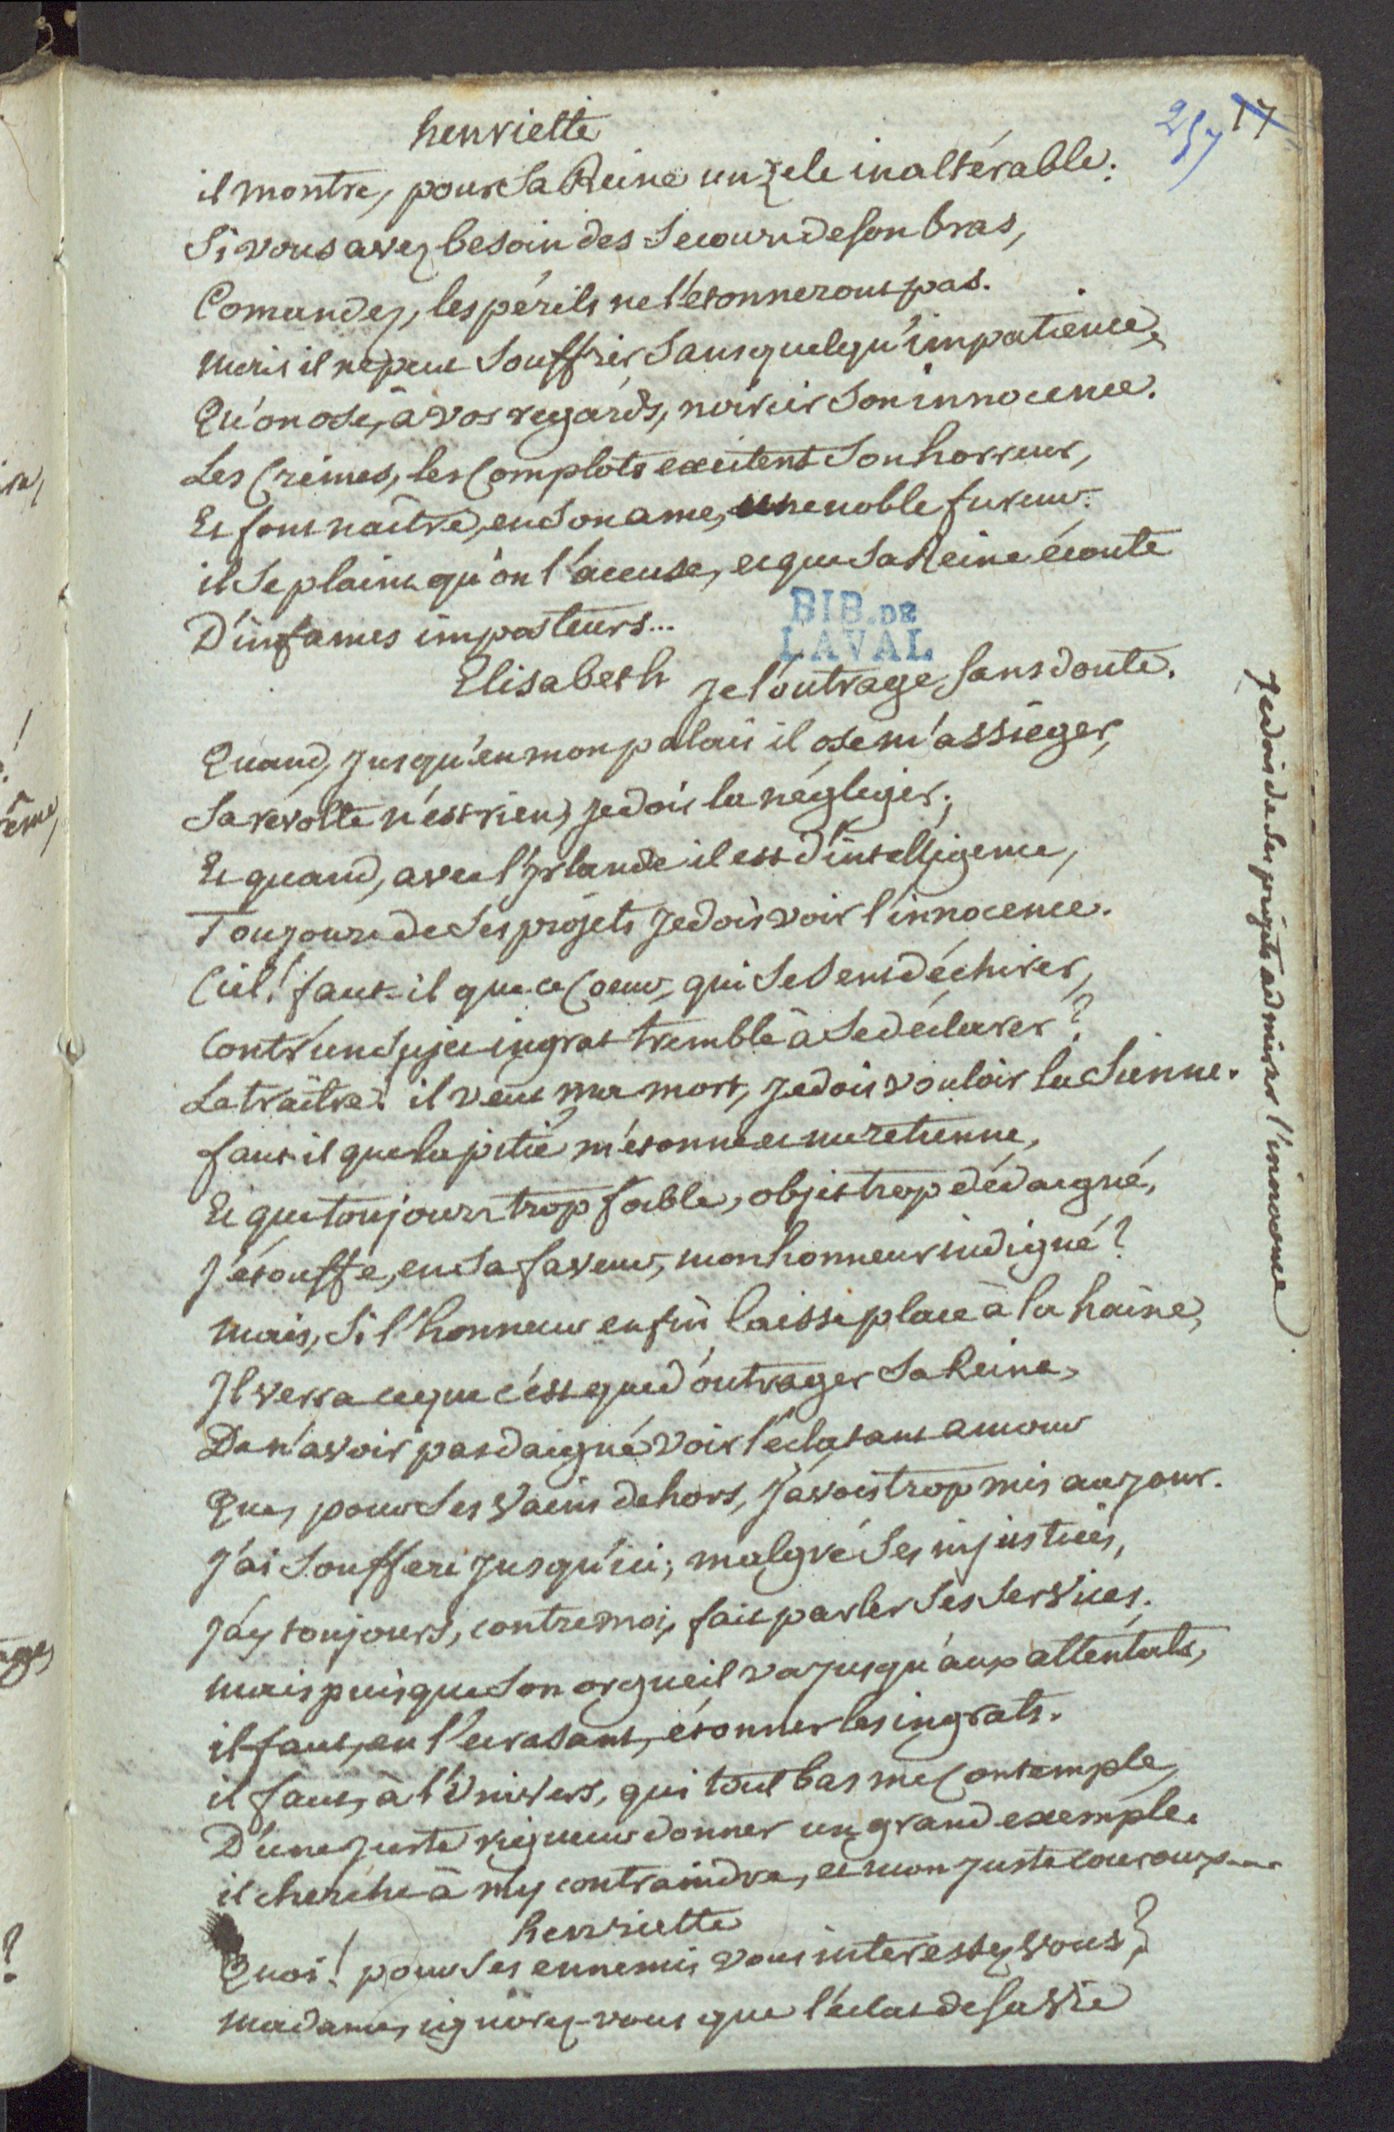 257 17
henriette
il montre, pour sa Reine un zele inaltérable.
Si vous avez besoin des secours de son bras,
Comandez, les périls ne l'étonneront pas.
Mais il ne peut souffrir sans quelqu'impatience,
Qu'on ose, à vos regards, noircir son innocence.
Les Crimes, les Complots excitent son horreur,
Et font naître, en son ame, une noble fureur.
il se plaint qu'on l'accuse, et que sa Reine écoute
D'infames imposteurs...
BIB. DE
LAVAL
Elisabeth
Je l'outrage, sans doute.
Quand, jusqu'en mon palais il ose m'assiéger,
Sa révolte n'est rien, je dois la négliger;
Et quand, avec l'Irlande il est d'intelligence,
Toujours de ses projets je dois voir l'innocence.
Je dois de ses projets admirer l'innocence
Ciel! faut-il que ce Coeur, qui se sent déchirer,
Contr'un sujet ingrat tremble à se déclarer?
Le traitre! il veut ma mort, je dois vouloir la sienne.
faut il que la pitié m'étonne et me retienne,
Et que toujours trop foible, objet trop dédaigné,
J'étouffe, en sa faveur, mon honneur indigné?
Mais, si l'honneur enfin laisse place à la haine,
Il verra ce que c'est que d'outrager sa Reine,
De n'avoir pas daigné voir l'éclatant amour
Que, pour ses vains dehors, j'avois trop mis au jour.
J'ai souffert jusqu'ici; malgré ses injustices,
J'ay toujours, contre moi, fait parler ses services.
Mais puisque son orgueil va jusqu'aux attentats,
il faut, en l'ecrasant, étonner les ingrats.
il faut, à l'Univers, qui tout bas me Contemple,
D'une juste rigueur donner un grand exemple.
il cherche à my contraindre, et mon juste couroux...
henriette
Quoi! pour ses ennemis vous interessez vous?
Madame, ignorez-vous que l'éclat de sa vie